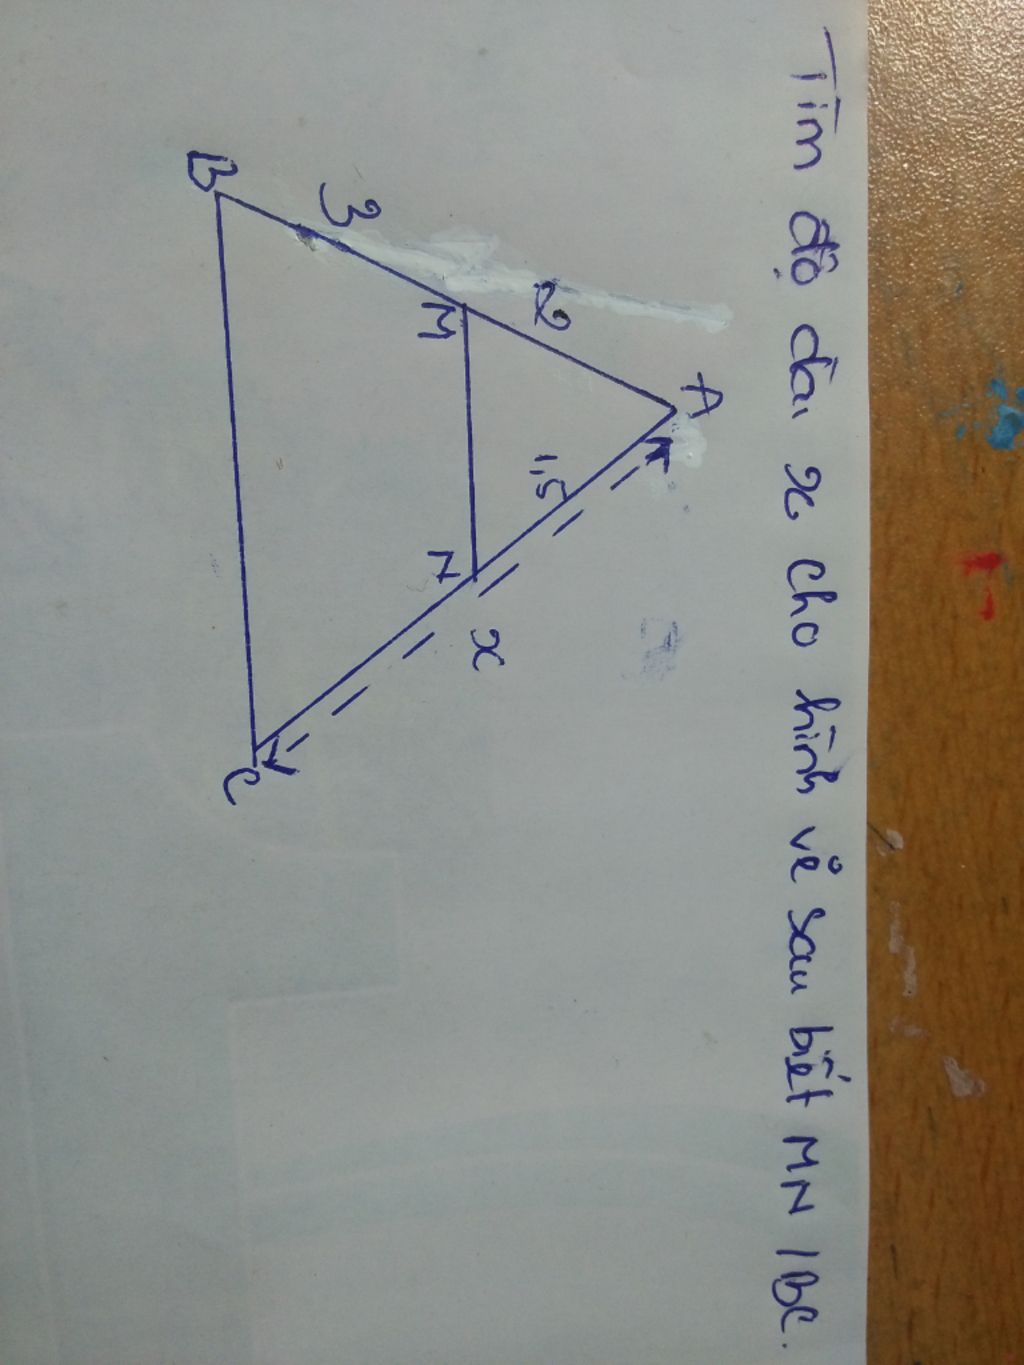 Tìm độ dài x cho hình vẻ sau biết MN / BC.
A
2
1,5
M
N
x
3
B
C